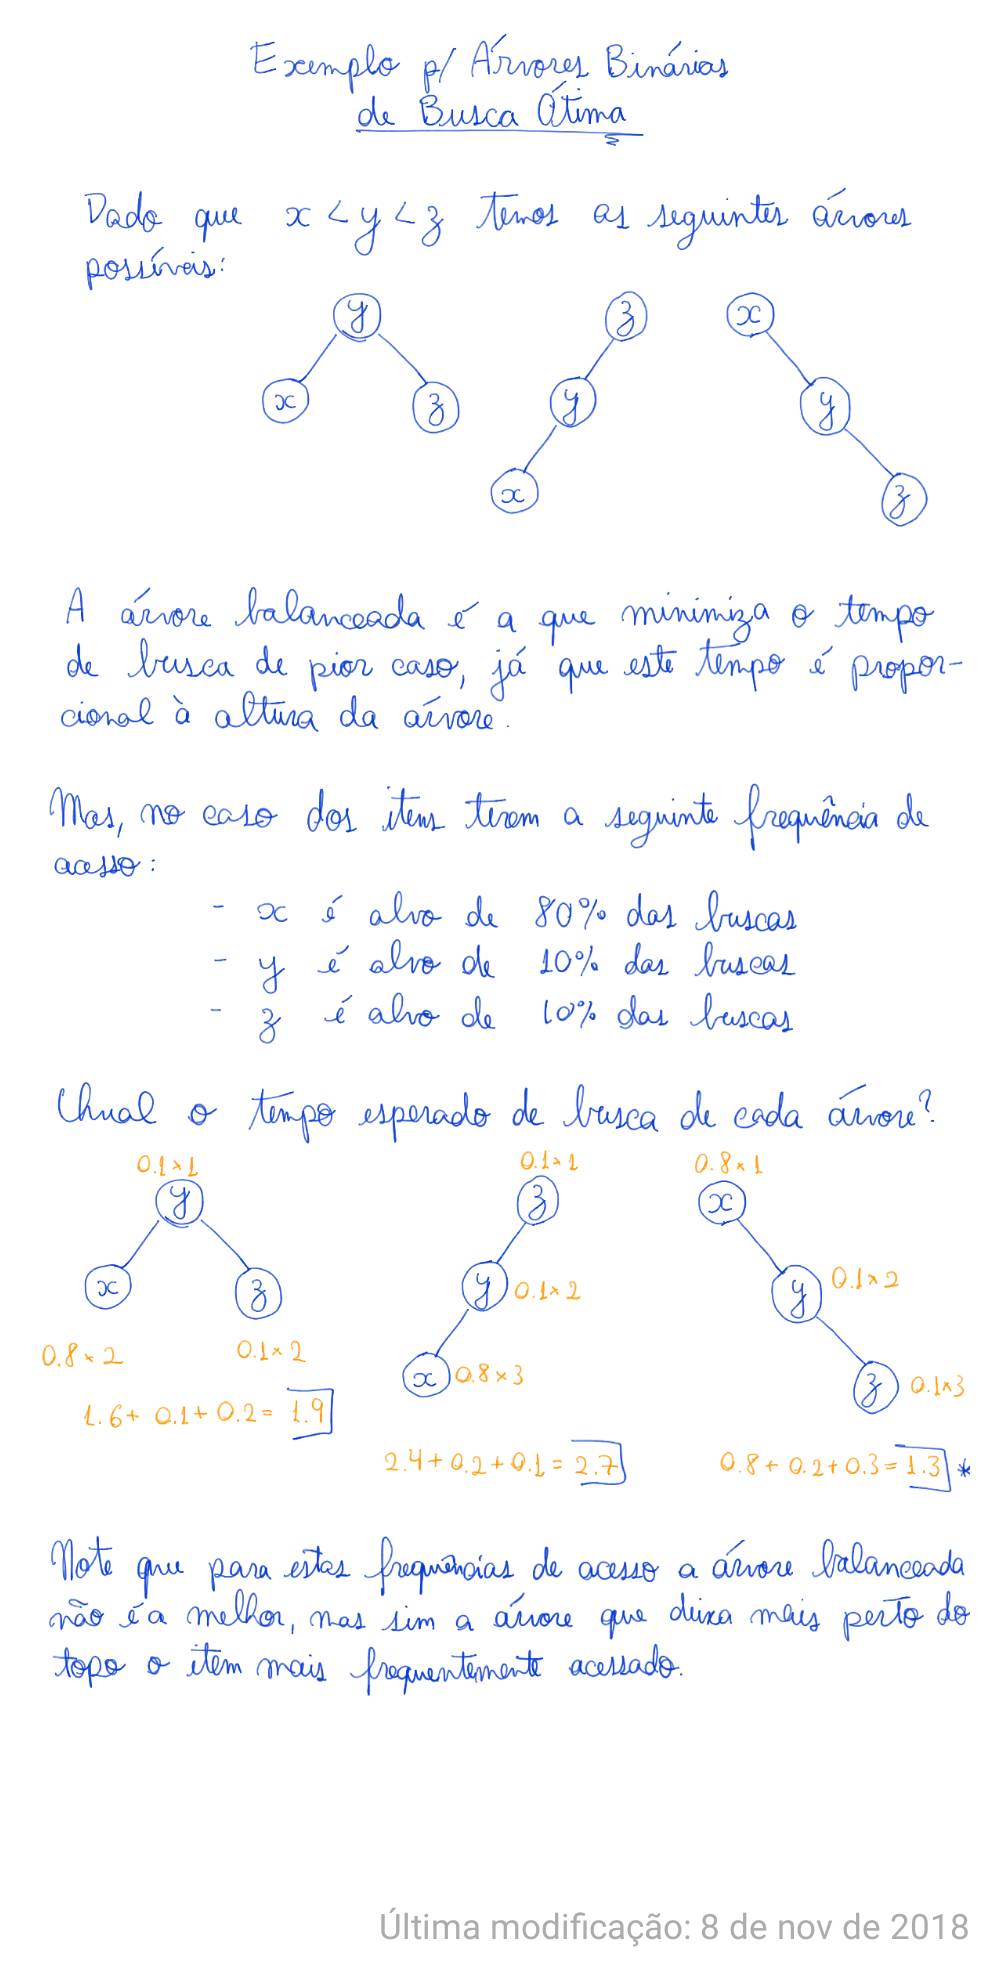 Exemplo p/ Árvores Binárias
de Busca Ótima
Dado que x < y < z temos as seguintes árvores
possíveis:
y z x
x z y y
x z
A árvore balanceada é a que minimiza o tempo
de busca de pior caso, já que este tempo é propor-
cional à altura da árvore.
Mas, no caso dos itens terem a seguinte frequência de
acesso:
- x é alvo de 80% das buscas
- y é alvo de 10% das buscas
- z é alvo de 10% das buscas
Qual o tempo esperado de busca de cada árvore?
0.1×1 0.1×1 0.8×1
y z x
x z y 0.1×2 y 0.1×2
0.8×2 0.1×2 x 0.8×3 z 0.1×3
1.6+ 0.1+ 0.2= 1.9
2.4+0.2+0.1= 2.7 0.8+ 0.2+ 0.3= 1.3 *
Note que para estas frequências de acesso a árvore balanceada
não é a melhor, mas sim a árvore que deixa mais perto do
topo o item mais frequentemente acessado.
Última modificação: 8 de nov de 2018